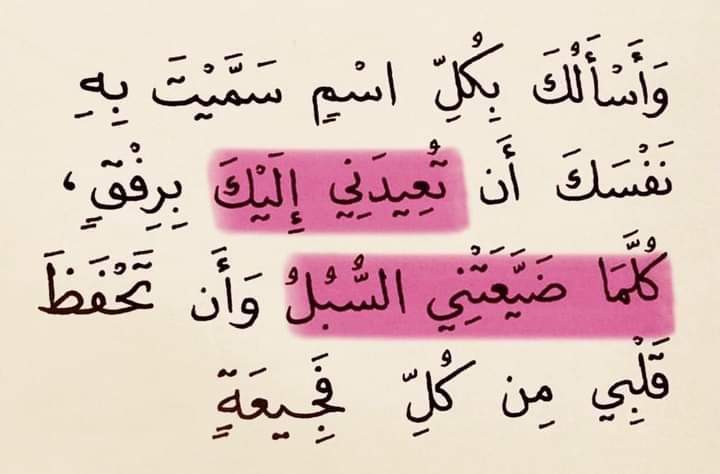 وَأَسْأَلُكَ بِكُلِّ اسْمٍ سَمَّيْتَ بِهِ
نَفْسَكَ أَن تُعِيدَنِي إِلَيْكَ بِرِفْقٍ،
كُلَّمَا ضَيَّعَتْنِي السُّبُلُ وَأَن تَحْفَظَ
قَلْبِي مِن كُلِّ فَجِيعَةٍ